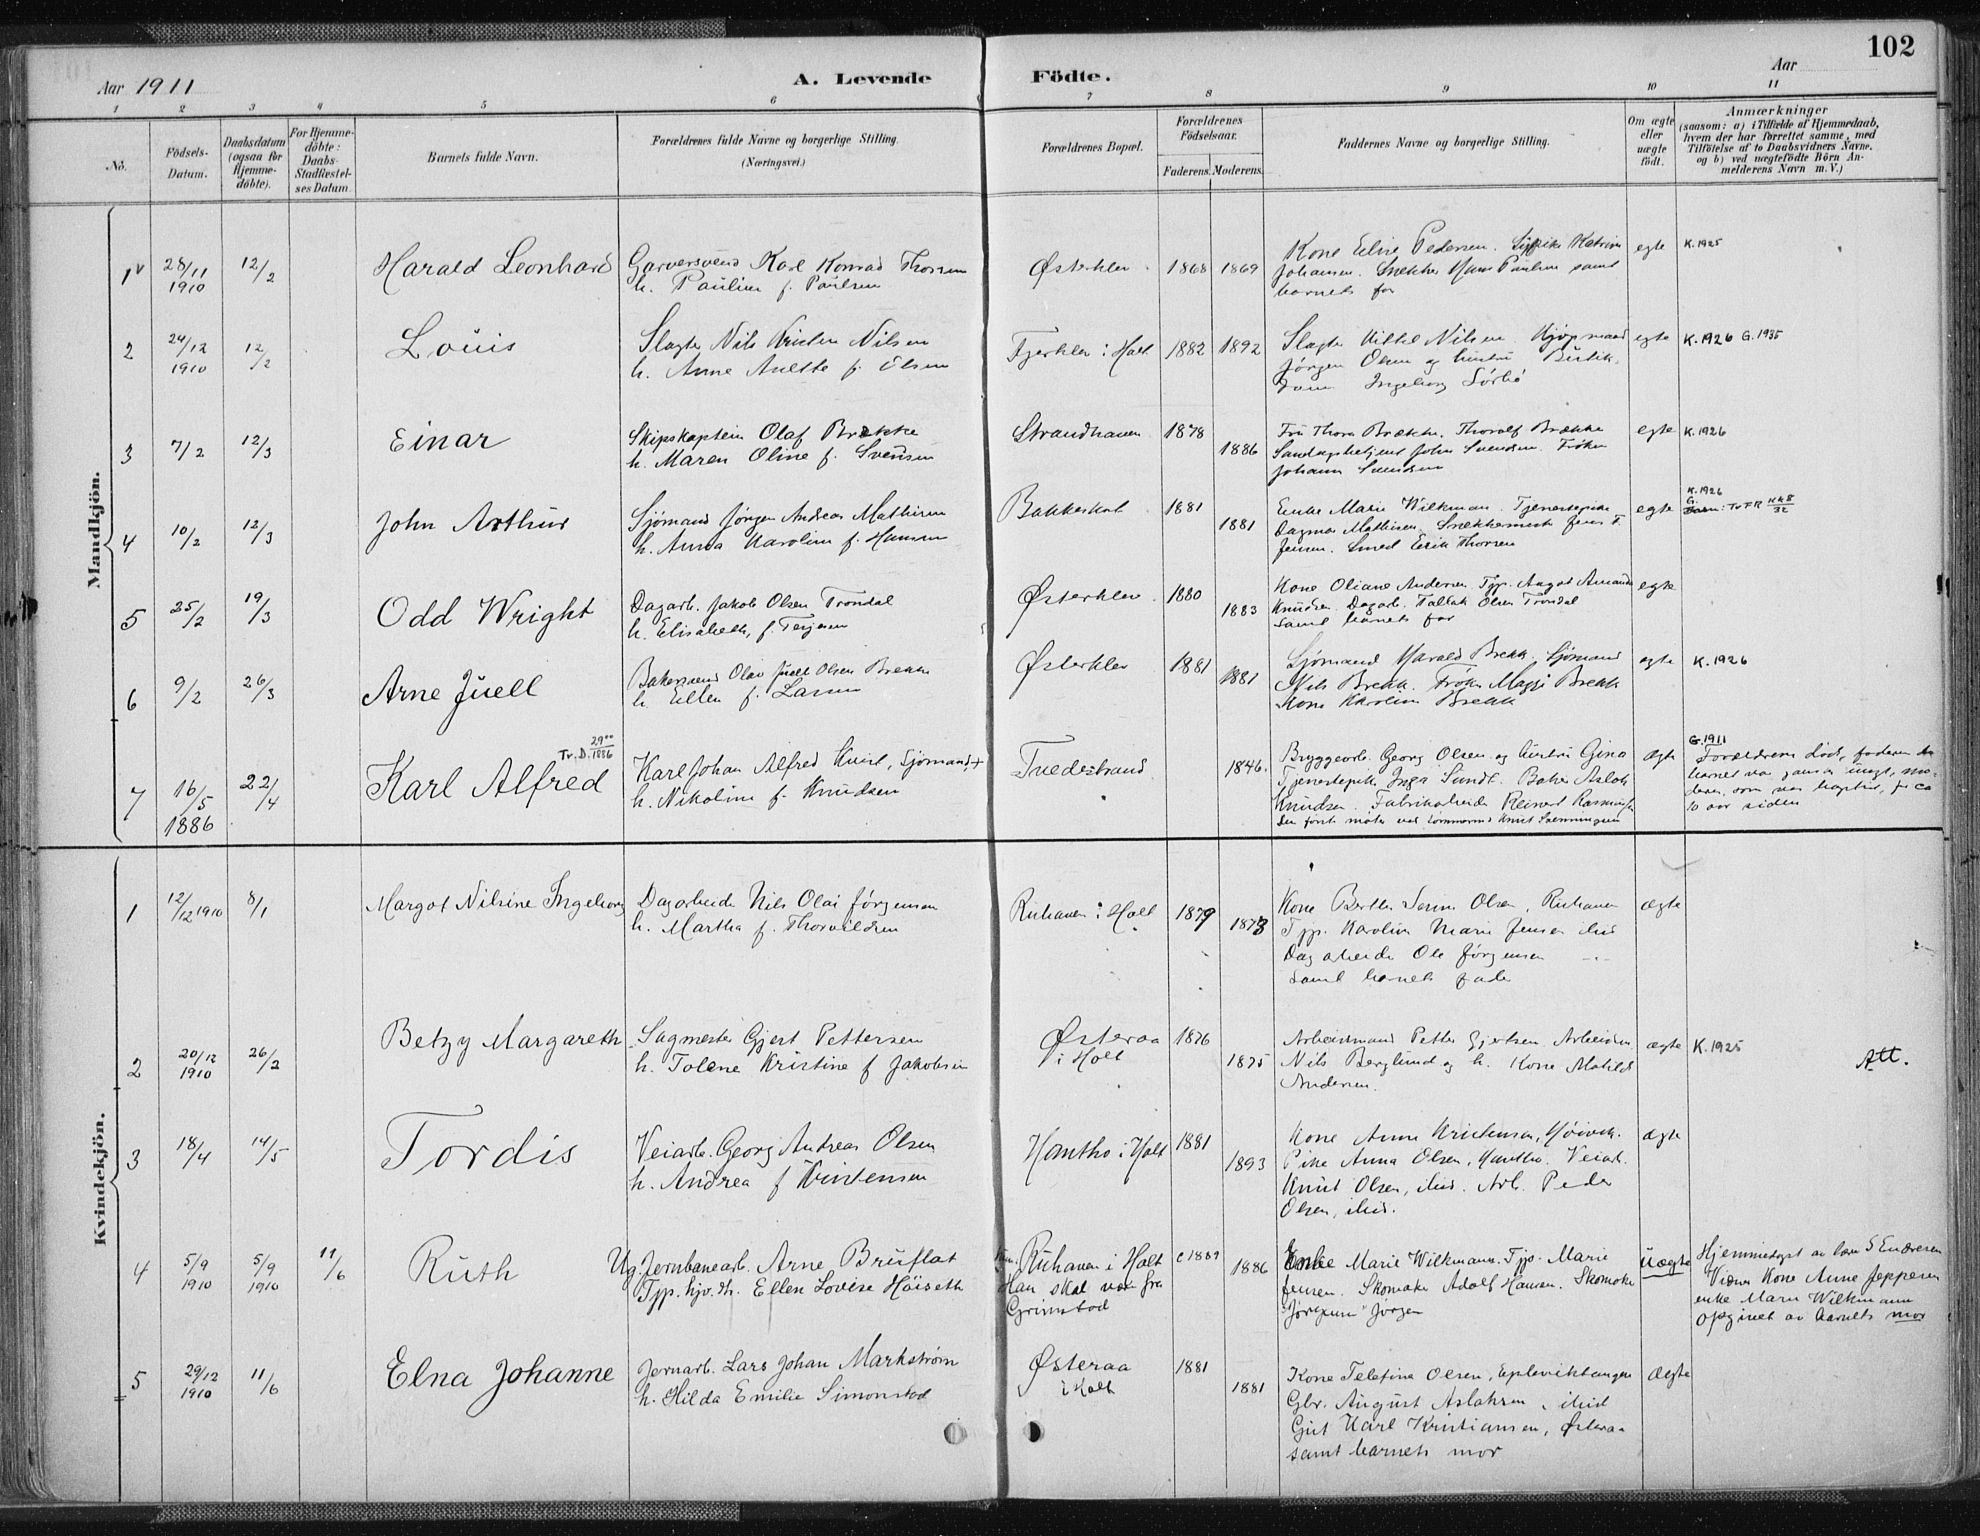 102
Aar 1911
A. Levende Födte.
Aar
1 2 3 4 5 6 7 8 9 10 11
No.
Födsels-Datum.
Daabsdatum (ogsaa for Hjemme-döbte).
For Hjemme-döbte: Daabs-Stadfæstel-ses Datum
Barnets fulde Navn.
Forældrenes fulde Navne og borgerlige Stilling.
(Næringsvei.)
Forældrenes Bopæl.
Forældrenes Födselsaar.
Faderens. Moderens.
Faddernes Navne og borgerlige Stilling.
Om ægte eller uægte födt.
Anmærkninger
(saasom: a) i Tilfælde af Hjemmedaab,
hvem der har forrettet samme, med
Tilföielse af to Daabsvidners Navne.
og b) ved uægtefödte Börn An-
melderens Navn m. V.)
Mandkjön.
1 28/11 1910 12/2 Harald Leonhard
Garversvend Karl Konrad Thorsen
h. Pauline f. Paulsen
Østerklev 1868 1869
Kone Elise Pedersen. Katrine
Johansen. Snekker Hans Paulsen samt
barnets far
egte K. 1925
2 24/12 1910 12/2 Louis
Slagter Nils Kristen Nilsen
h. Anne Anette f. Olsen
Fjerklev i Holt 1882 1892
Slagter Nilsen. Kjøpmand
Jørgen Olsen og hustru Butik-
dame Ingeborg Sörbö
egte K. 1926 G. 1935
3 7/2 12/3 Einar
Skipskaptein Olaf Brække
h. Maren Oline f. Svendsen
Strandhaven 1878 1886
Fru Thora Brække. Thoralf Brække
John Svendsen. Frøken
Johanne Svendsen
egte K. 1926
4 10/2 12/3 John Arthur
Sjömand Jörgen Andreas Mathisen
h. Anna Karoline f. Hansen
Bakkeskot 1881 1881
Enke Marie Wilkmann. Tjenestepike
Dagmar Mathisen. Snekkermester Jens F.
Jensen. Smed Erik Thorsen
egte K. 1926
G.
5 25/2 19/3 Odd Wright
Dagarb. Jakob Olsen Trondal
h. Elisabeth, f. Terjesen
Østerklev 1880 1883
Kone Oliane Andersen Tjp. Aagot Amanda
Knudsen. Dagarb. Tallak Olsen Trondal
samt barnets far
egte
6 9/2 26/3 Arne Juell
Bakersvend Olav Juell Olsen Brekke
h. Ellen f. Larsen
Østerklev 1881 1881
Sjömand Harald Brekk. Sjömand
Nils Brekk. Frøken Maggi Brekk
Kone Karoline Brekk
egte K. 1926
7 16/5 1886 22/4 Karl Alfred
Tv. D. 2900/1886
Karl Johan Alfred Knut, Sjömand, +
h. Nikoline f. Knudsen
Tvedestrand 1846.
Bryggearb. Georg Olsen og hustru Gina
Tjenestepike Inga Sundt. Baker Aslak
Knudsen. Fabrikarbeider Reinert Rasmussen
Den første møter ved tømmermand Knut Svenningsen
egte G. 1911
Forældrene död, faderen da
barnet var ganske ungt, mo-
deren, som var baptist, for ca
10 aar siden
Kvindekjön.
1 12/12 1910 8/1 Margot Nilsine Ingeborg
Dagarbeider Nils Olai Jörgensen
h. Martha f. Thorvildsen
Ruhaven i Holt 1879 1873
Kone Berthe Serine Olsen, Ruhaven
Tjp. Karoline Marie Jensen ibid
Dagarbeider Ole Jörgensen -"-
samt barnets fader
ægte
2 20/12 1910 26/2 Betzy Margareth
Sagmester Gjert Pettersen
h. Tolene Kristine f Jakobsen
Østeraa i Holt 1876 1875
Arbeidsmand Petter Gjertsen. Arbeider
Nils Berglund og h. Kone Matilde
Andersen.
ægte K. 1925
Att.
3 18/4 14/5 Tordis
Veiarb. Georg Andreas Olsen
h. Andrea f Kristensen
Hantho i Holt 1881 1893
Kone Anne Kristensen,
Pike Anna Olsen, Hantho. Veiarb.
Knut Olsen, ibid. Arb. Peder
Olsen, ibid.
ægte
4 5/9 1910 5/9 1910 11/6 Ruth
Ug. Jernbanearb. Arne Bruflat
Tjp. hjv. th. Ellen Lovise Höiseth
Ruhaven i Holt
Han skal være fra
Grimstad
c 1889 1886
Enke Marie Wilkmann. Tjp. Marie
Jensen. Skomaker Adolf Hansen. Skomaker
"Jörgensen" Jørgen
uægte
Hjemmedøpt av S Endresen
Vidner Kone Anne Jeppesen
enke Marie Wilkmann
opgivet av barnets mor
5 29/12 1910 11/6 Elna Johanne
Jernarb. Lars Johan Markström
h. Hilda Emilie Simonstad
Østeraa i Holt 1881 1881
Kone Telefina Olsen, Eplevikstangen
Gbr. August Aslaksen, ibid
Gut Karl Kristiansen, Østeraa
samt barnets mor
Ægte